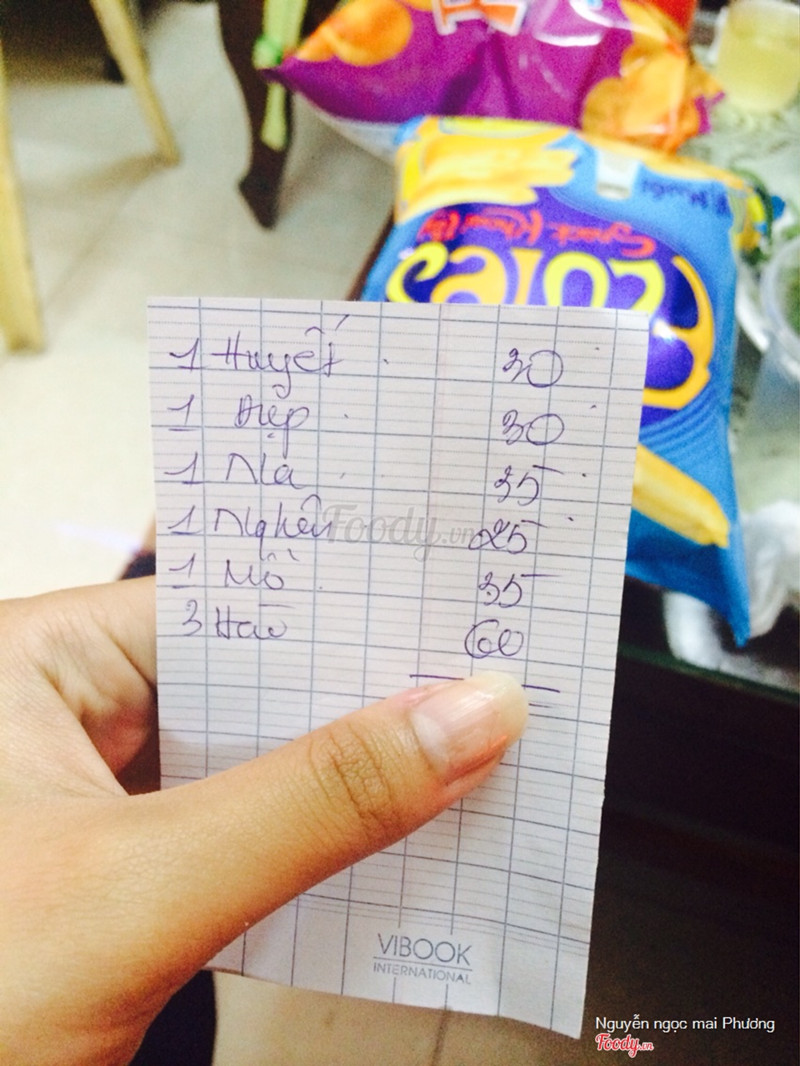 1 Huyết 30
1 Điệp 30
1 Nla 35
1 Nghêu 25
1 Mồ 35
3 Hào 60
Foody.vn
VIBOOK
INTERNATIONAL
Nguyễn ngọc mai Phương
Foody.vn